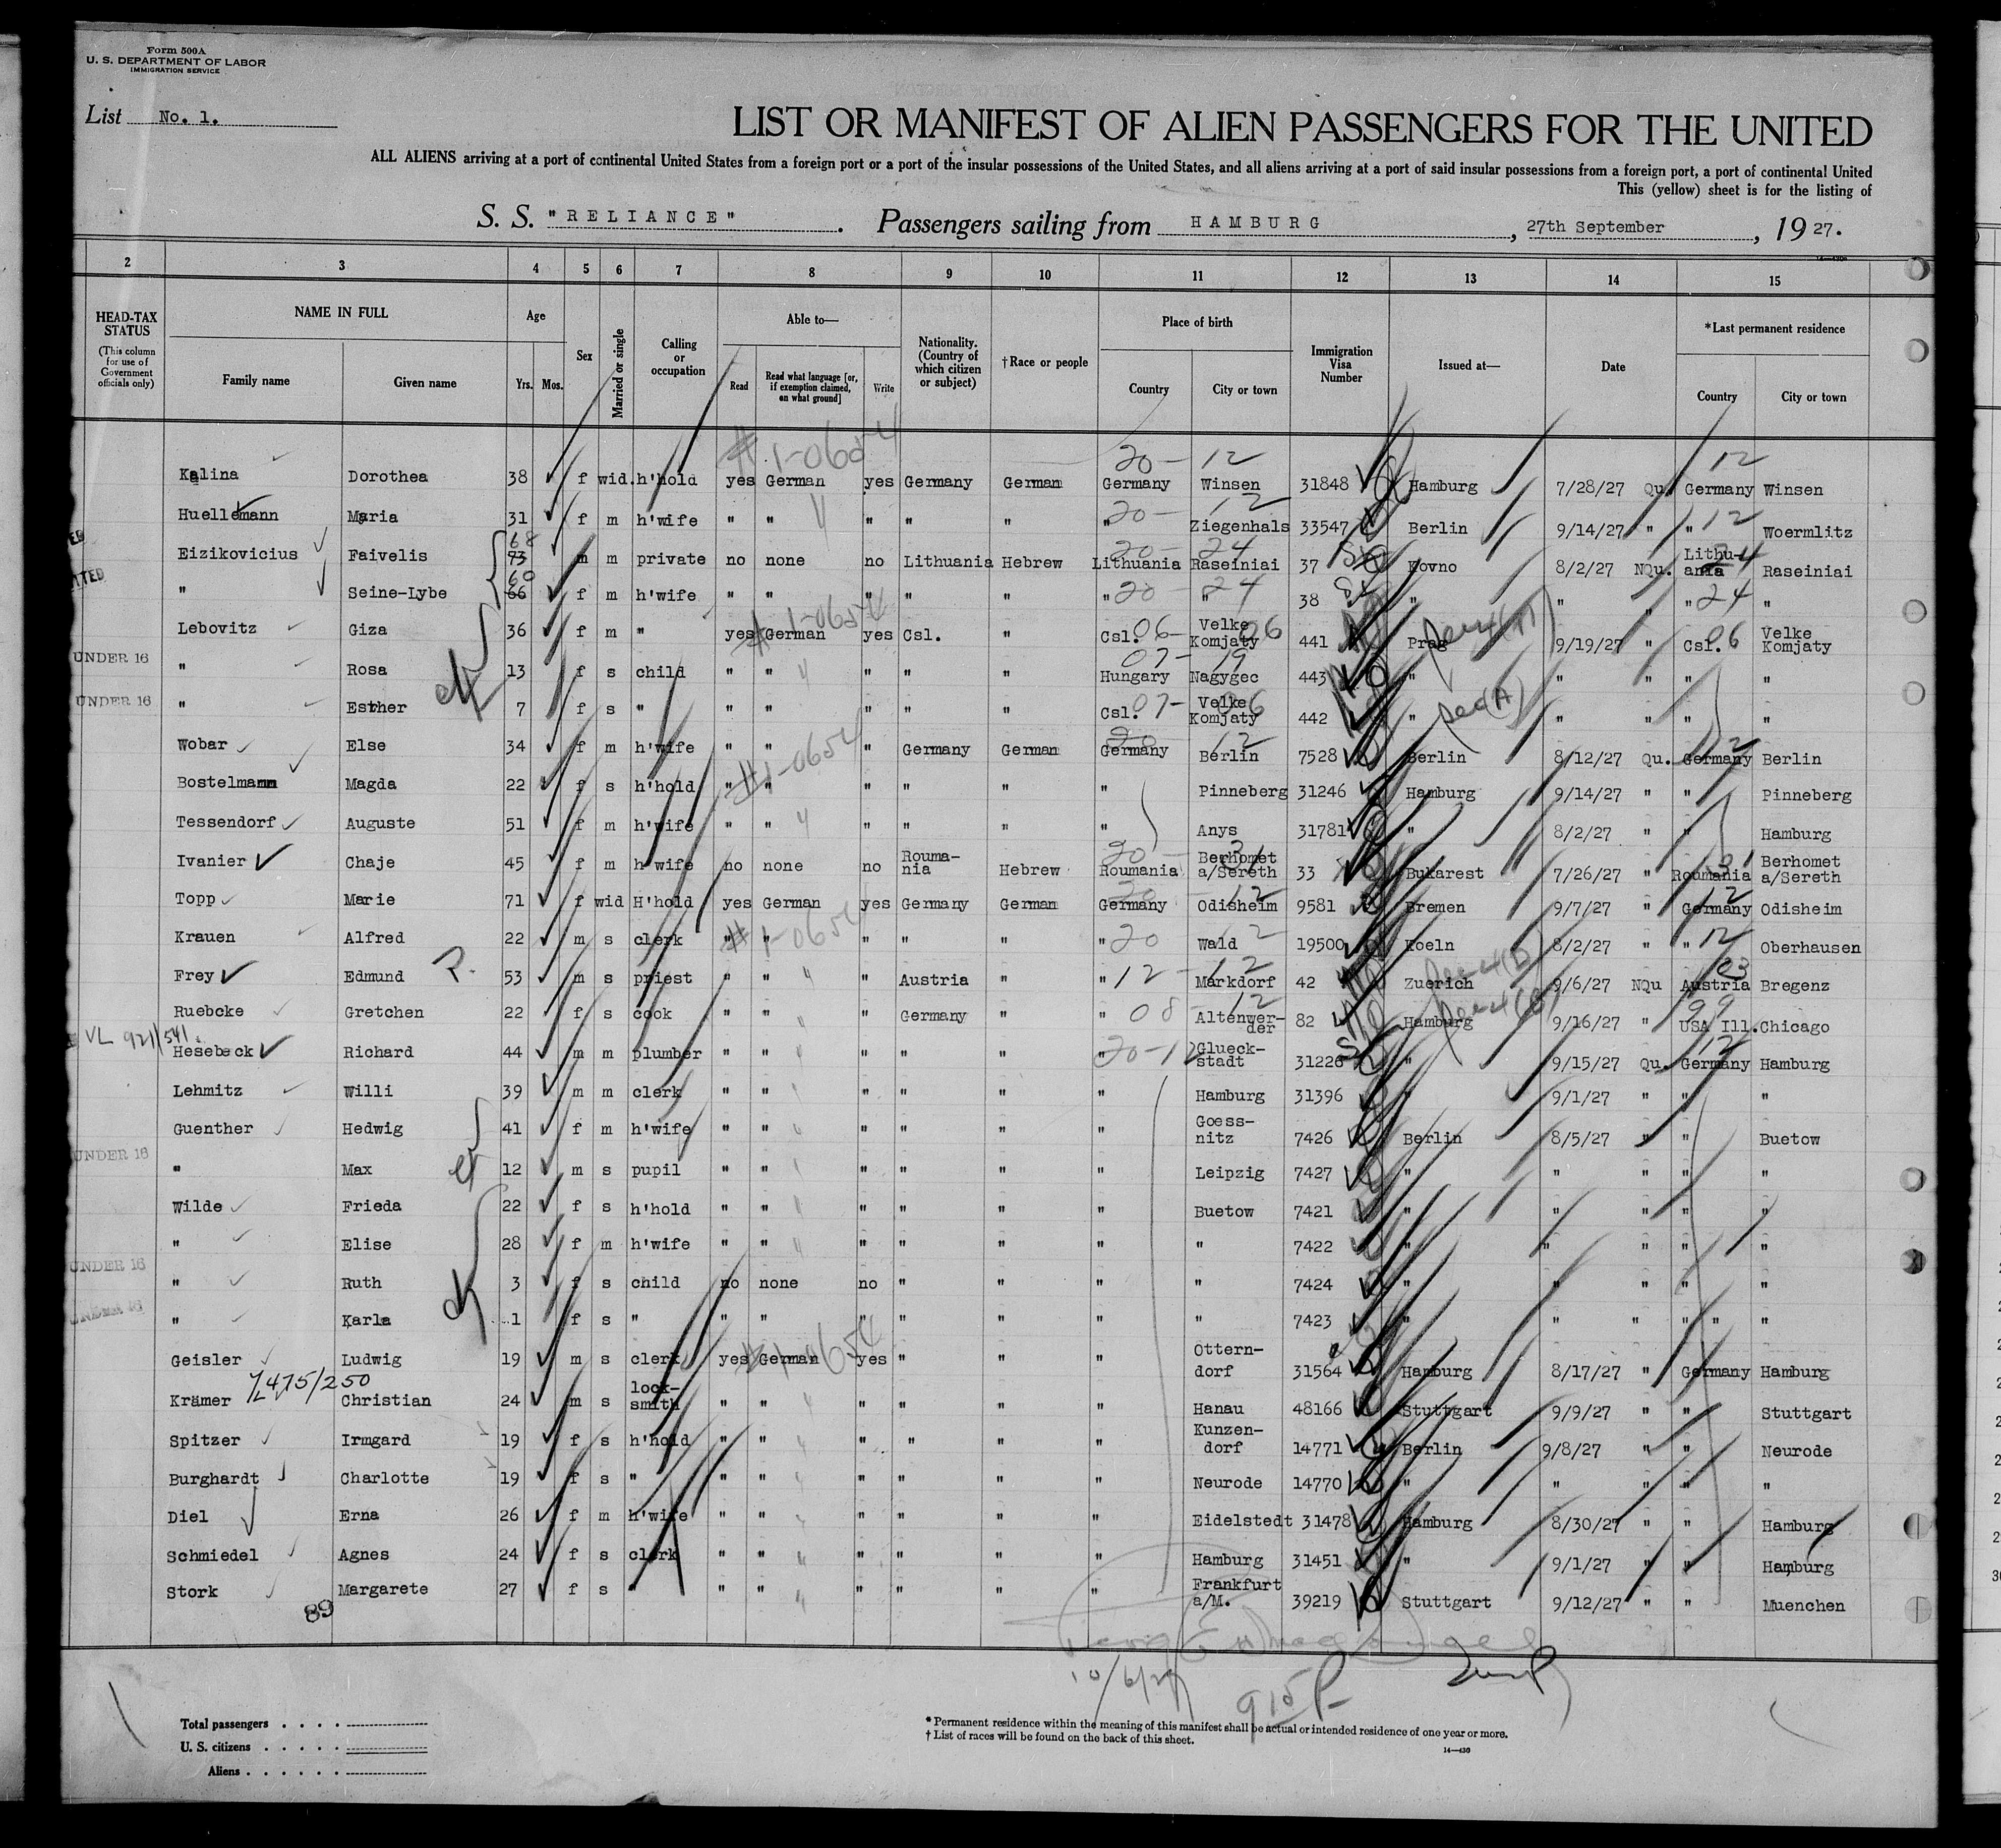 Form 500A
U. S. DEPARTMENT OF LABOR
IMMIGRATION SERVICE
List No. 1.
LIST OR MANIFEST OF ALIEN PASSENGERS FOR THE UNITED
ALL ALIENS arriving at a port of continental United States from a foreign port or a port of the insular possessions of the United States, and all aliens arriving at a port of said insular possessions from a foreign port, a port of continental United
This (yellow) sheet is for the listing of
S. S. "RELIANCE". Passengers sailing from HAMBURG, 27th September, 1927.
2 3 4 5 6 7 8 9 10 11 12 13 14 15
HEAD-TAX STATUS (This column for use of Government officials only) NAME IN FULL Family name Given name Age Yrs. Mos. Sex Married or single Calling or occupation Able to— Read Read what language [or, if exemption claimed, on what ground] Write Nationality. (Country of which citizen or subject) †Race or people Place of birth Country City or town Immigration Visa Number Issued at— Date *Last permanent residence Country City or town
#1-0654 20- 12 12
Kalina Dorothea 38 f wid. h'hold yes German yes Germany German Germany Winsen 31848 Hamburg 7/28/27 Qu. Germany Winsen
Huellemann Maria 31 f m h'wife " " " " " " 20- Ziegenhals 12 33547 Berlin 9/14/27 " " 12 Woermlitz
Eizikovicius Faivelis 73 68 m m private no none no Lithuania Hebrew Lithuania 20- Raseiniai 24 37 Kovno 8/2/27 NQu. Lithuania 24 Raseiniai
" Seine-Lybe 66 60 f m h'wife " " " " " " 20- " 24 38 " " " " 24 "
Lebovitz Giza 36 f m " yes German yes Csl. " Csl. 06- Velke Komjaty 06 441 Prag 9/19/27 " Csl. 06 Velke Komjaty
#1-0654
UNDER 16 " Rosa 13 f s child " " " " " Hungary 07- Nagygec 19 443 " " " " "
UNDER 16 " Esther 7 f s " " " " " " Csl. 07- Velke Komjaty 06 442 " " " " "
Wobar Else 34 f m h'wife " " " Germany German Germany 20 Berlin 12 7528 Berlin 8/12/27 Qu. Germany 12 Berlin
#1-0654
Bostelmann Magda 22 f s h'hold " " " " " " Pinneberg 31246 Hamburg 9/14/27 " " Pinneberg
Tessendorf Auguste 51 f m h'wife " " " " " " Anys 31781 " 8/2/27 " " Hamburg
Ivanier Chaje 45 f m h'wife no none no Roumania Hebrew Roumania 20- Berhomet a/Sereth 31 33 Bukarest 7/26/27 " Roumania 31 Berhomet a/Sereth
Topp Marie 71 f wid H'hold yes German yes Germany German Germany 20- Odisheim 12 9581 Bremen 9/7/27 " Germany 12 Odisheim
#1-0654
Krauen Alfred 22 m s clerk " " " " " " 20 Wald 12 19500 Koeln 8/2/27 " " 12 Oberhausen
Frey Edmund 53 m s priest " " " Austria " " 12- Markdorf 12 42 Zuerich 9/6/27 NQu Austria 03 Bregenz
Ruebcke Gretchen 22 f s cook " " " Germany " " 08- Altenwerder 12 82 Hamburg 9/16/27 " USA Ill. 99 Chicago
VL 921/541
Hesebeck Richard 44 m m plumber " " " " " " 20-12 Glueckstadt 31226 " 9/15/27 Qu. Germany 12 Hamburg
Lehmitz Willi 39 m m clerk " " " " " " Hamburg 31396 " 9/1/27 " " "
Guenther Hedwig 41 f m h'wife " " " " " " Goessnitz 7426 Berlin 8/5/27 " " Buetow
UNDER 16 " Max 12 m s pupil " " " " " " Leipzig 7427 " " " " "
Wilde Frieda 22 f s h'hold " " " " " " Buetow 7421 " " " " "
" Elise 28 f m h'wife " " " " " " " 7422 " " " " "
UNDER 16 " Ruth 3 f s child no none no " " " " 7424 " " " " "
UNDER 16 " Karla 1 f s " " " " " " " " 7423 " " " " "
Geisler Ludwig 19 m s clerk yes German yes " " " Otterndorf 31564 Hamburg 8/17/27 " Germany Hamburg
#1-0654
VL 475/250
Krämer Christian 24 m s locksmith " " " " " " Hanau 48166 Stuttgart 9/9/27 " " Stuttgart
Spitzer Irmgard 19 f s h'hold " " " " " " Kunzendorf 14771 Berlin 9/8/27 " " Neurode
Burghardt Charlotte 19 f s " " " " " " " Neurode 14770 " " " " "
Diel Erna 26 f m h'wife " " " " " " Eidelstedt 31478 Hamburg 8/30/27 " " Hamburg
Schmiedel Agnes 24 f s clerk " " " " " " Hamburg 31451 " 9/1/27 " " Hamburg
Stork Margarete 27 f s " " " " " " " Frankfurt a/M. 39219 Stuttgart 9/12/27 " " Muenchen
89
10/6/27
915 P
Total passengers
U. S. citizens
Aliens
* Permanent residence within the meaning of this manifest shall be actual or intended residence of one year or more.
† List of races will be found on the back of this sheet.
14—430